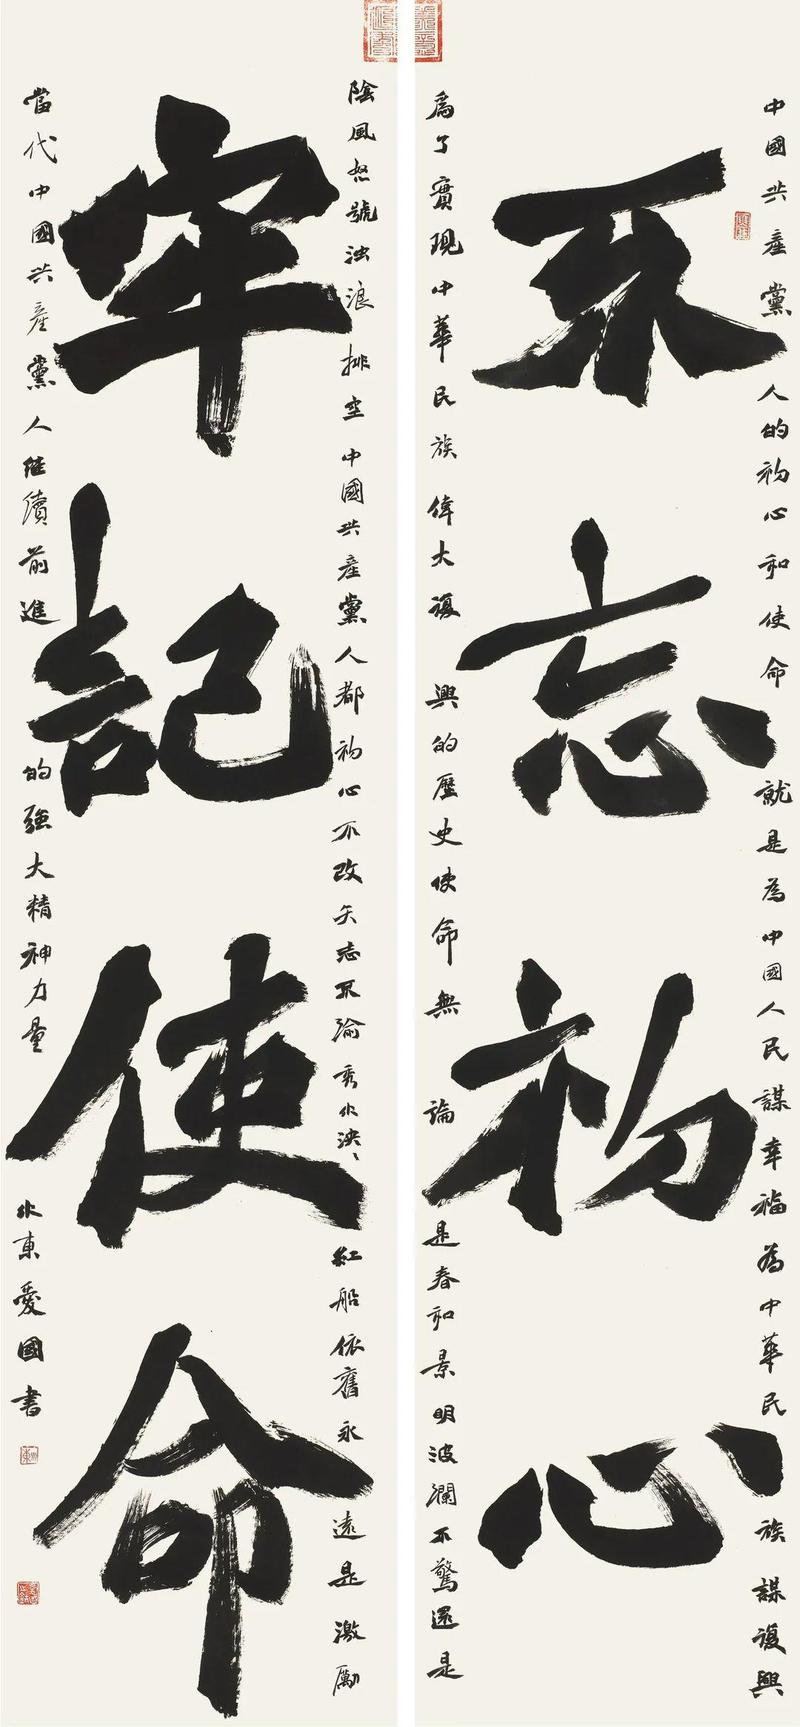 不忘初心
牢記使命
中國共產黨人的初心和使命就是為中國人民謀幸福為中華民族謀復興
爲了實現中華民族偉大復興的歷史使命無論是春和景明波瀾不驚還是
陰風怒號浊浪排空中國共產黨人都初心不改矢志不渝秀水泱、紅船依舊永遠是激勵
當代中國共產黨人继續前進的強大精神力量
水東愛國書